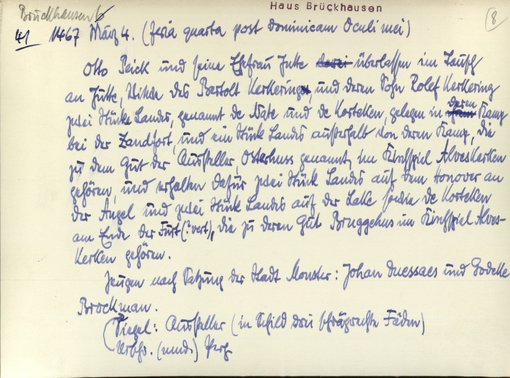 Haus Brückhausen
Brückhausen 6 (8)
41 1467 März 4. (feria quarta post dominicam Oculi mei)
Otto Peick und seine Ehefrau Jutte überlassen im Tausch
an Jutte, Witwe des Bartolt Kerkering, und deren Sohn Rolef Kerkering
zwei Stücke Landes, genannt de Nate und de Korteken, gelegen in deren Kamp
bei der Zandfort und ein Stück Landes außerhalb von deren Kamp, die
zu dem Gut der Aussteller Osterhuss genannt im Kirchspiel Alveskerken
gehören, und erhalten dafür zwei Stück Landes auf dem Honover an
der Angel und zwei Stück Landes auf der Lake de Korteken
am Ende der Furt (:vert), die zu deren Gut Bruggehus im Kirchspiel Alves-
kerken gehören.
Zeugen nach Satzung der Stadt Monster: Johan und Godeke
Brockman.
(Siegel: Aussteller (im Schild drei schrägrechte Fäden)
Urschr. (mnd.) Perg